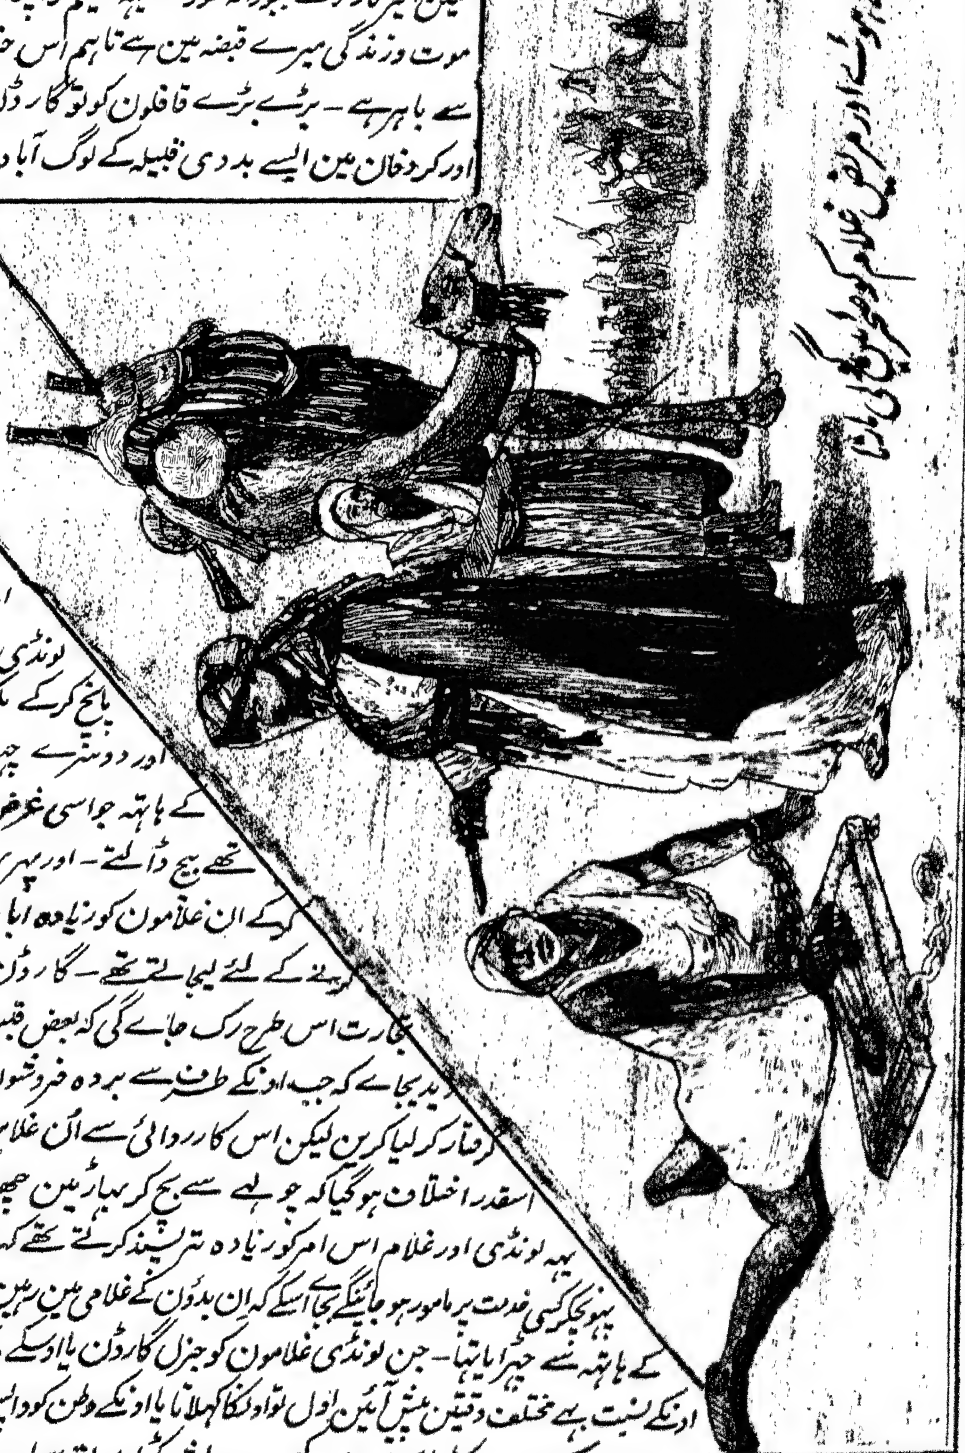 موت و زندگی میرے قبضہ مین ہے تاہم اس
سے باہر ہے - بڑے بڑے قافلون کو تو گارڈن
اور کردخان مین ایسے بددی قبیلہ کے لوگ آباد
ہوئے اور مریض غلام کو صحرا مین گولی مارنا
لونڈی
پانچ کرکے
اور دوسرے
کے ہاتہہ جو اسی غرض
تھے بیچ ڈالتے - اور پہر
کرکے ان غلامون کو زیادہ
کرنے کے لئے لیجاتے تھے - گارڈن
تجارت اس طرح رک جاے گی کہ بعض
دیدیجاے کہ جب اونکے طرف سے بردہ فروشون
گرفتار کر لیا کرین لیکن اس کارروائی سے اُن
اسقدر اختلاف ہو گیا کہ جو لہے سے بچ کر بہاڑ مین
یہہ لونڈی اور غلام اس امر کو زیادہ تر پسند کرتے تھے کہ
پہونچکر کسی خدمت پر مامور ہو جائینگے بجاے اسکے کہ اِن بدؤن کے غلامی مین رہین
کے ہاتہہ سے چہڑایا تہا - جن لونڈی غلامون کو جنرل گارڈن یا اوسکے
اونکے نسبت بہے مختلف دقتین پیش آئین اول تو اونکا کہلانا یا اونکے وطن کو